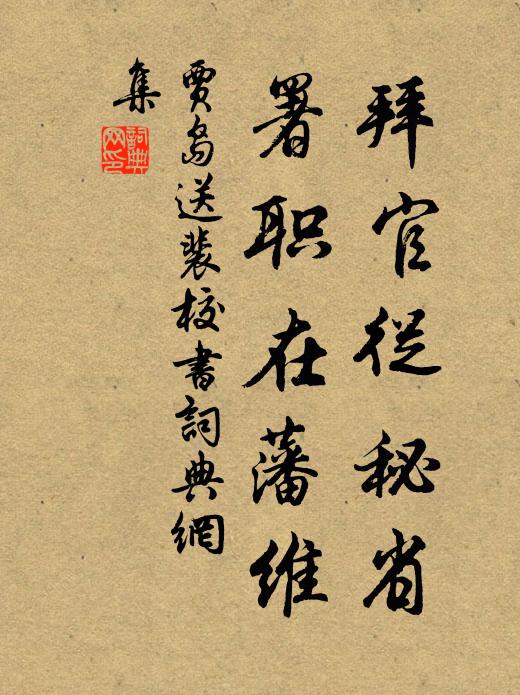 拜官從秘省
署职在藩維
賈島送裴校書詞典網
集
詞典網印